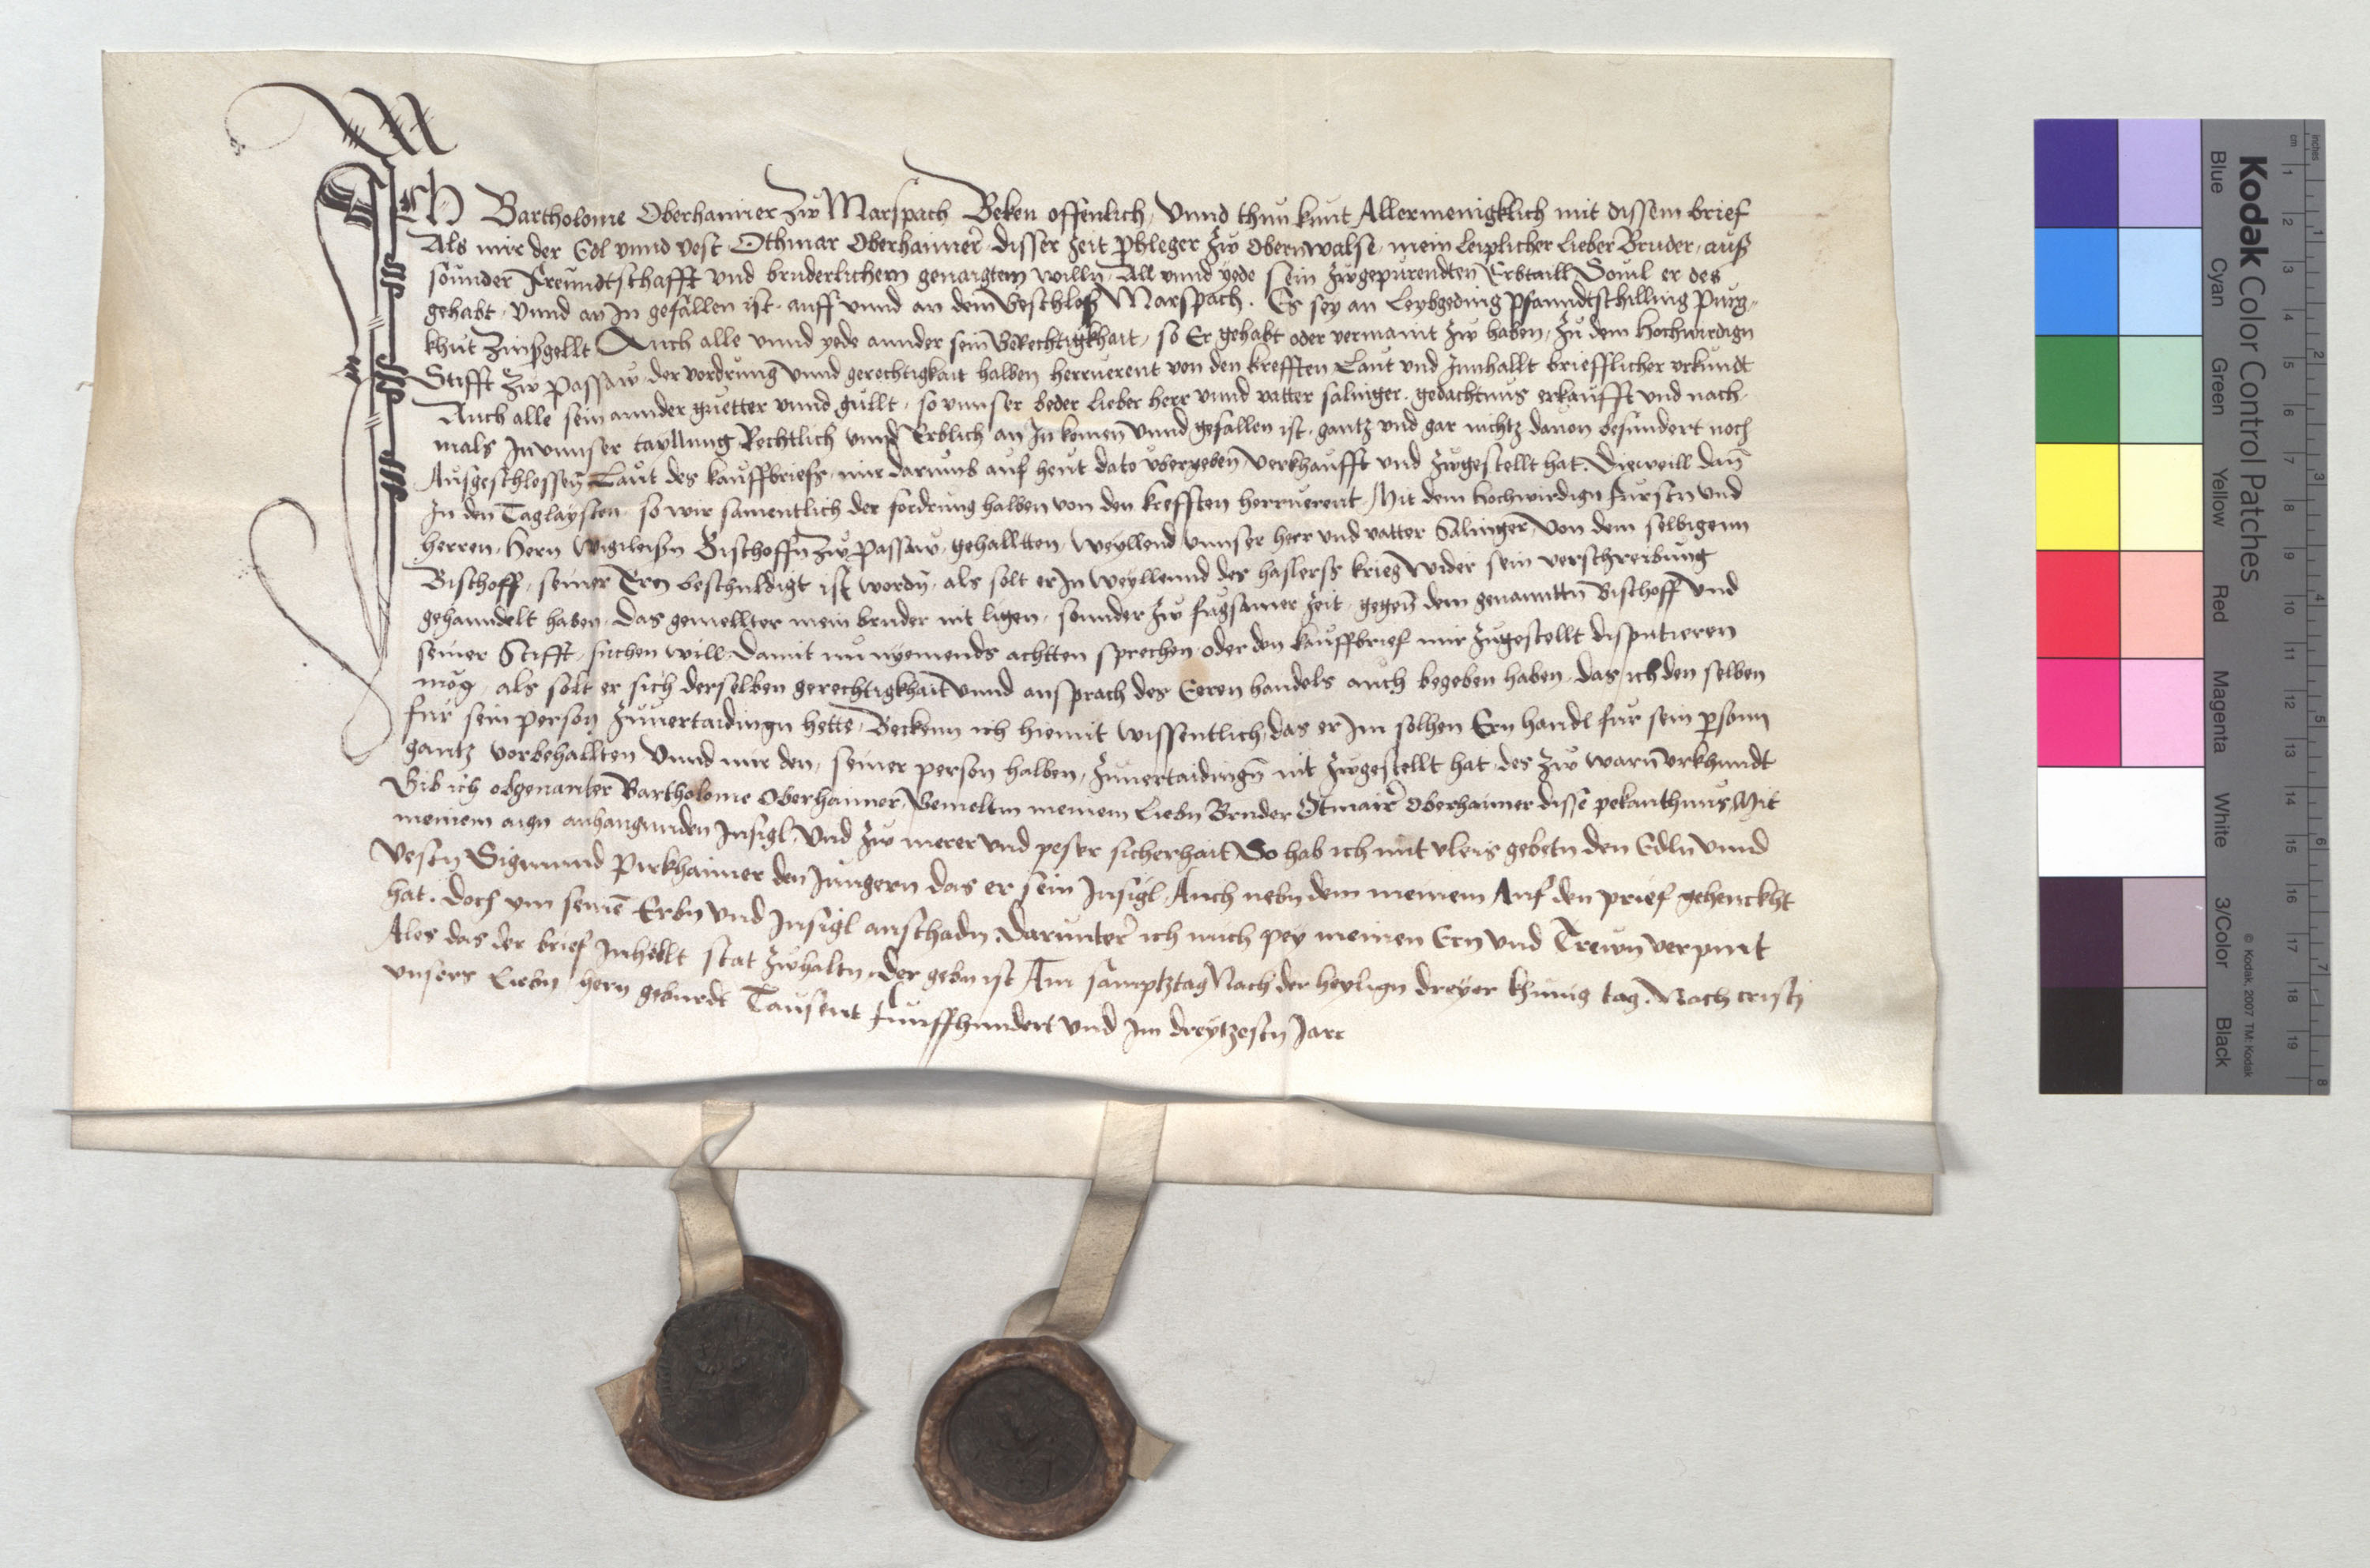 Ich Bartholome Oberhaimer zw Marspach Beken offenlich, Vnnd thun kunt Allermenigklich mit dissem brief
Als mir der Edl vnnd vest Othmar Oberhaimer disser zeit phleger zw Obernwalse, mein leiplicher lieber Bruder, auß
sounder Freundtschafft vnd bruderlichem genaigtem willn, All vnnd yede sein zwgepurendten Erbtaill Souil er des
gehabt, Vnnd an In gefallen ist, auff vnnd an dem Geschloß Marspach. Es sey an Leybgeding pfanndtschilling purg-
khut Zinßgellt Auch alle vnnd yede annder sein Gerechtigkhait, so Er gehabt oder vermaint zw haben, zu dem Hochwirdign
Stifft zw Passaw der vordrung vnnd gerechtigkait halben herruerent von den krefften Laut vnd Innhallt briefflicher vrkundt
Auch alle sein annder guetter vnnd gullt, so vnnser beder lieber herr vnnd vatter saliger gedachtnus erkaufft vnd nach-
mals In vnnser tayllung Rechtlich vnnd Erblich an In komen vnnd gefallen ist, gantz vnd gar nichtz dauon besundert noch
Ausgeschlossen Laut des kauffbriefs, mir darumb auf heut dato vbergeben, verkhaufft vnd zwgestellt hat. Dieweill dan
In den Taglaysten so wir samentlich der fordrung halben von den krefften herruerent, Mit dem hochwirdign fursten vnd
herren, Hern Wigileißn Bischoffn zw Passaw, gehalltten, Weyllend vnnser herr vnd vatter Salinger, von dem selbigenn
Bischoff, seiner Ern beschuldigt ist wordn, als solt er In Weyllennd des haslerss krieg wider sein verschreibung
gehanndelt haben, Das gemellter mein bruder nit ligen, sonnder zw fugsamer zeit, gegen dem genanttn Bischoff vnd
seiner Stifft, suchen will, Damit nu nyemends achtten sprechen oder den kauffbrief mir zugestellt disputieren
mög, als solt er sich derselben gerechtigkhait vnnd ansprach des Eeren handels auch begeben haben, das ich den selben
fur sein person zuuertaidingn hette, Beckenn ich hiemit wissentlich, das er Im solhen Ern handl fur sein pson
gantz vorbehallten vnnd mir den, seiner person halben, zuuertaidingn nit zwgestellt hat, des zw warn vrkhundt
Gib ich obgenanter Bartholome Oberhaimer, Gemeltm meinem Liebn Bruder Otmair Oberhaimer disse pekanthnus, Mit
meinem aign anhangunden Insigl, Vnd zw merer vnd peser sicherhait So hab ich mit vleis gebetn den Edln vnnd
Vestn Sigmund Pirkhaimer den Jungern das er sein Insigl Auch nebn dem meinem Auf den prief gehenckht
hat. Doch ym seine Erbn vnd Insigl anschadn. Darunter ich mich pey meinen Ern vnd Trewn verpint
Ales das der brief Inhellt stat zwhaltn. Der gebn ist Am samptztag Nach der heylign dreyer khunig tag. Nach cristi
vnsers Liebn hern geburdt Tausent funffhundert vnd Im dreytzestn Jare
Kodak Color Control Patches
Blue Cyan Green Yellow Red Magenta White 3/Color Black
© Kodak, 2007 TM: Kodak
cm 1 2 3 4 5 6 7 8 9 10 11 12 13 14 15 16 17 18 19
inches 1 2 3 4 5 6 7 8